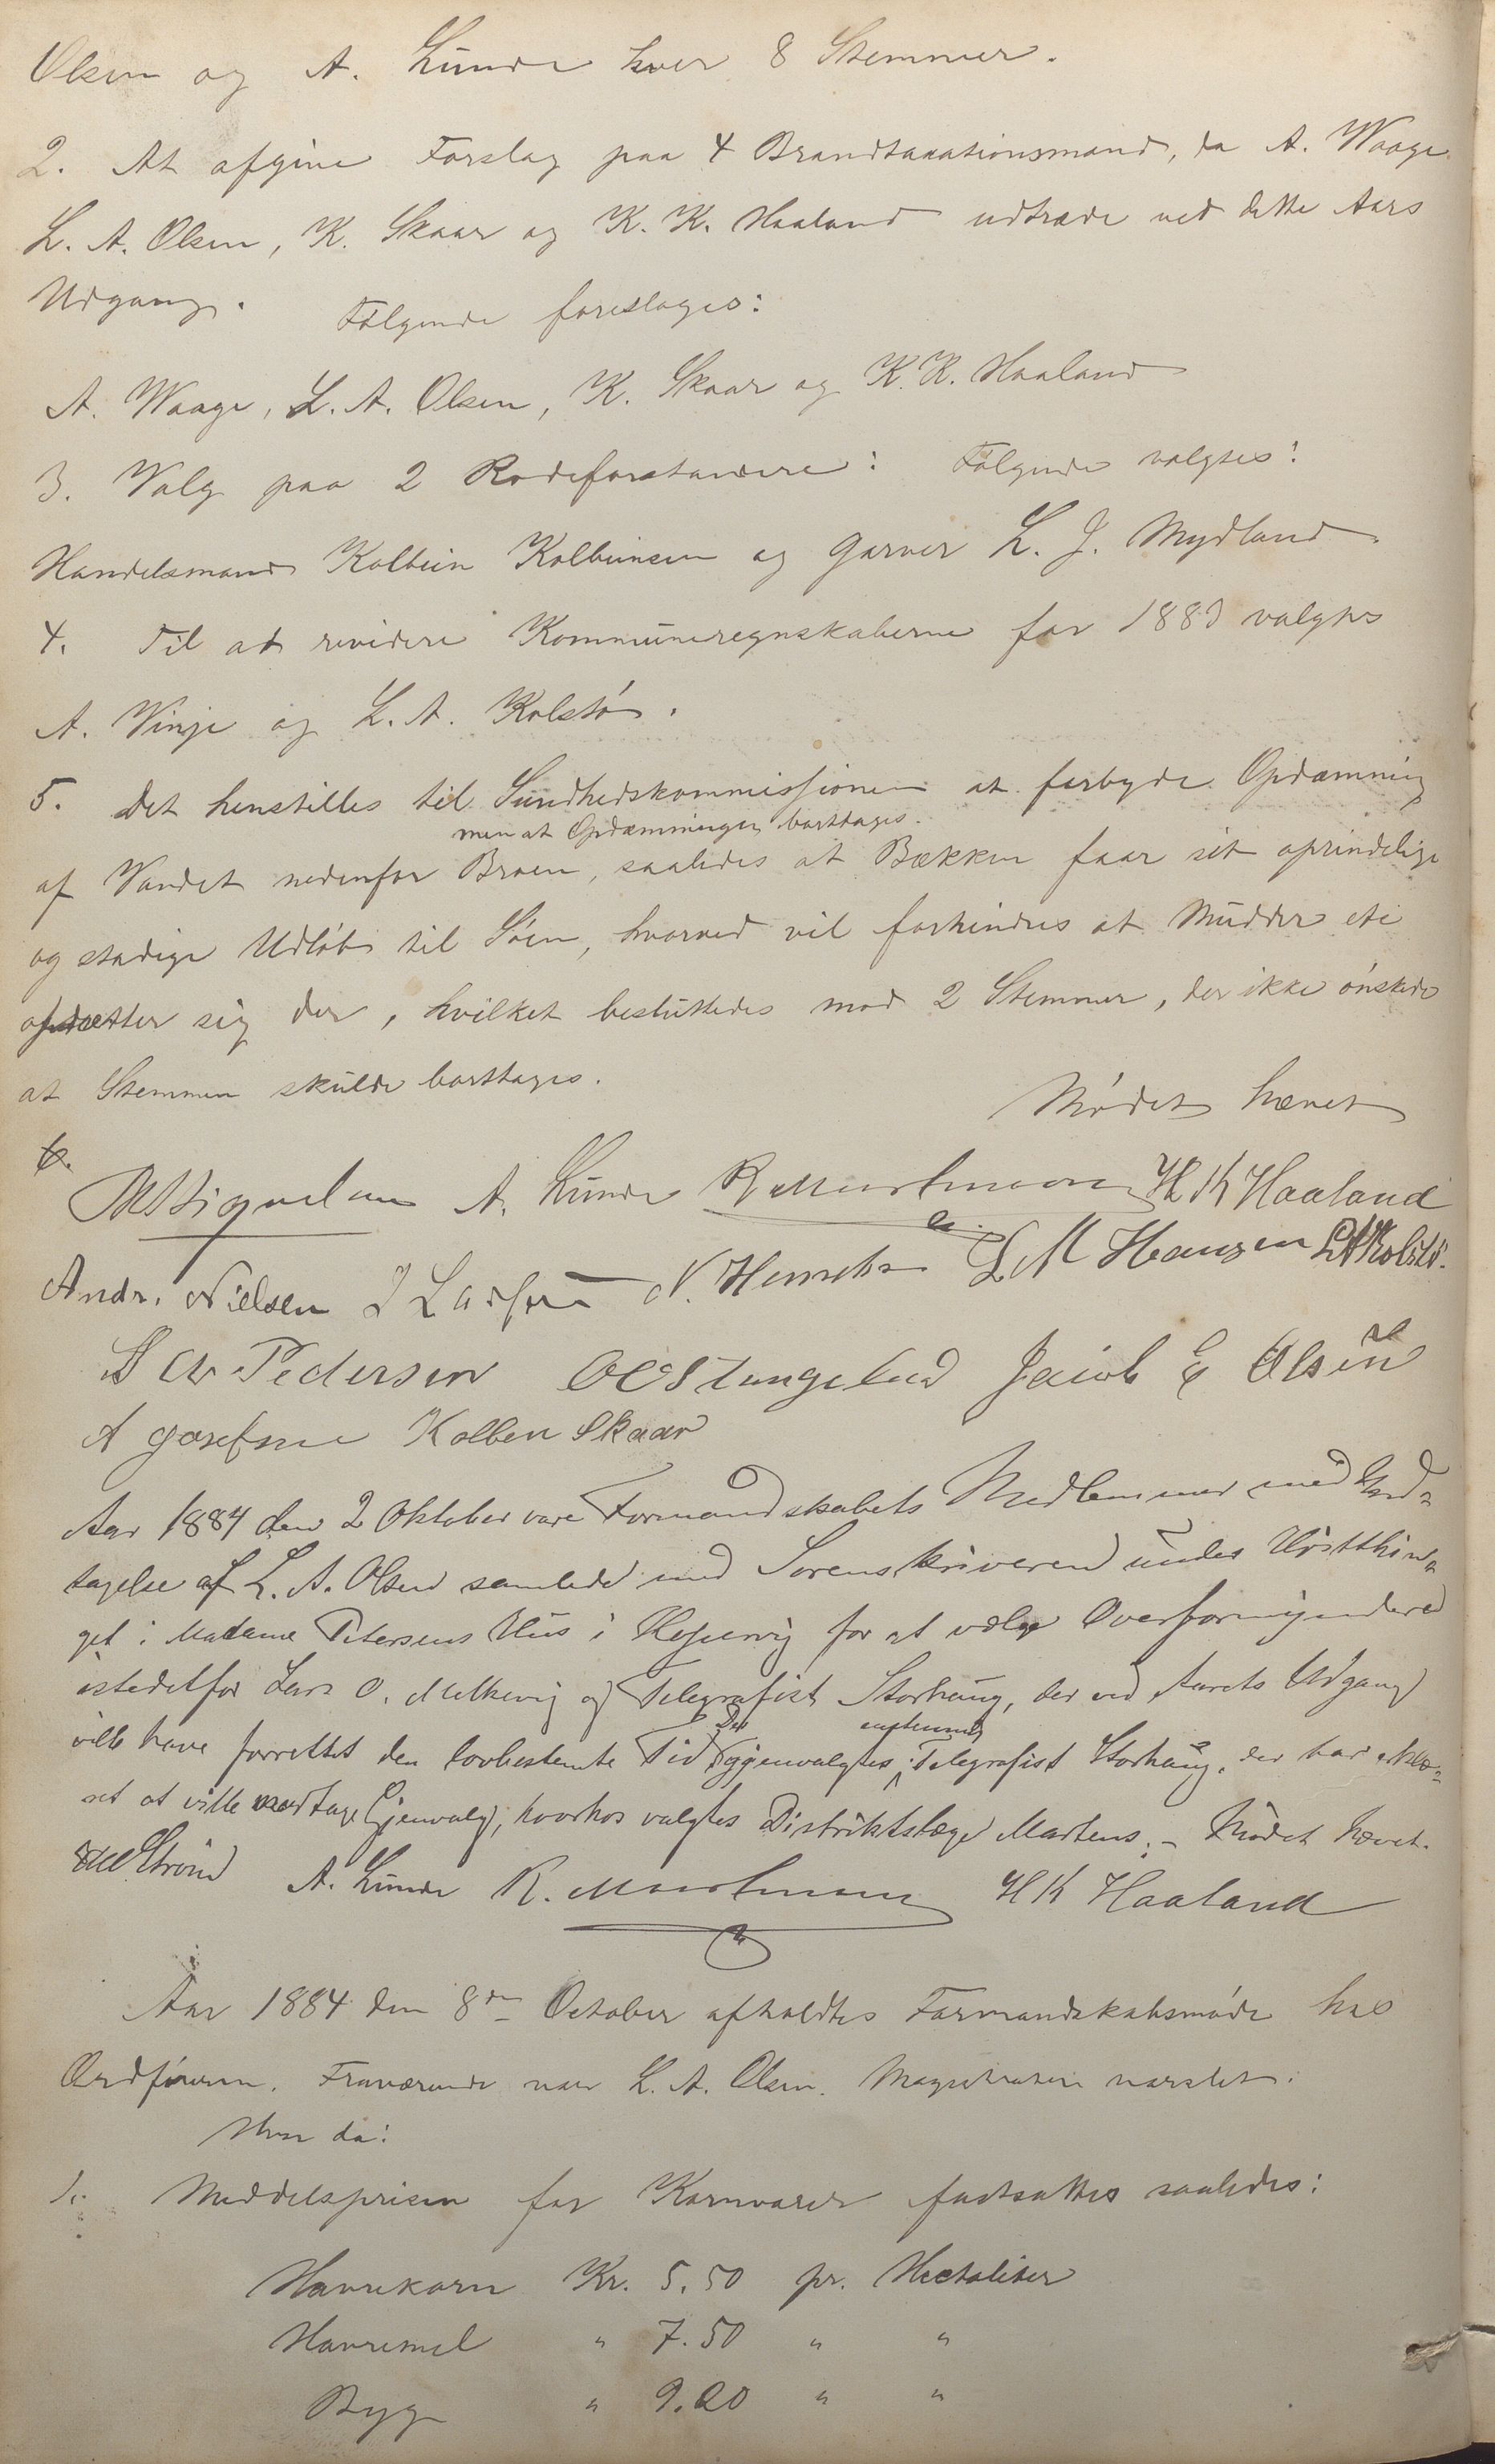 Olsen og A. Lunde hver 8 Stemmer.
2. At afgive Forslag paa 4 Brandtaxationsmænd, da A. Waage
L. A. Olsen, K. Skaar og K. K. Haaland udtræde ved dette Aars
Udgang. Følgende foreslages:
A. Waage, L. A. Olsen, K. Skaar og K. K. Haaland
3. Valg paa 2 Rodeforstandere: Følgende valgtes:
Handelsmand Kolbein Kolbeinsen og Garver L. J. Mydland.
4. Til at revidere Kommuneregnskaberne for 1883 valgtes
A. Vinje og L. A. Kolstø.
5. Det henstilles til Sundhedskommissionen at forbyde Opdæmning
men at Opdæmningen borttages.
af Vandet nedenfor Broen, saaledes at Bækken faar sit oprindelige
og stadige Udløb til Søen, hvorved vil forhindres at Mudder etc
afsætter sig der, hvilket besluttedes mod 2 Stemmer, der ikke ønskede
at Stemmen skulde borttages.
Mødet hævet
6.
A. Lunde H K Haaland
Andr. Nielsen J Larsen L M Hansen L A Kolstø.
Pedersen Stangeland Jacob E Olsen
A Josefsen Kolben Skaar
Aar 1884 den 2 Oktober vare Formandskabets Medlemmer med Und-
tagelse af L. A. Olsen samlede med Sorenskriveren under Høstthin-
get i Madame Petersens Hus i Kopervig for at vælge Overformyndere
istedetfor Lars O. Melkevig og Telegrafist Storhaug, der ved Aarets Udgang
ville have forrettet den lovbestemte Tid. Der gjenvalgtes enstemmig Telegrafist Storhaug, der har erklæ-
ret at ville modtage Gjenvalg, hvorhos valgtes Distriktslæge Martens. - Mødet hævet.
Strøm A. Lunde H K Haaland
Aar 1884 den 8de October afholdtes Formandskabsmøde hos
Ordføreren. Fraværende var L. A. Olsen. Magistraten varslet.
Hvor da:
1. Middelsprisen for Kornvarer fastsattes saaledes:
Havrekorn Kr. 5.50 pr. Hectoliter
Havremel " 7.50 " "
Byg " 9.00 " "